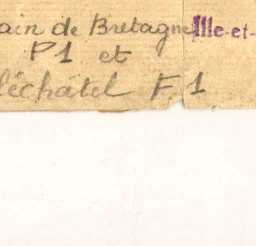 ain de Bretagne Ille-et-
P1 et
léchâtel F.1